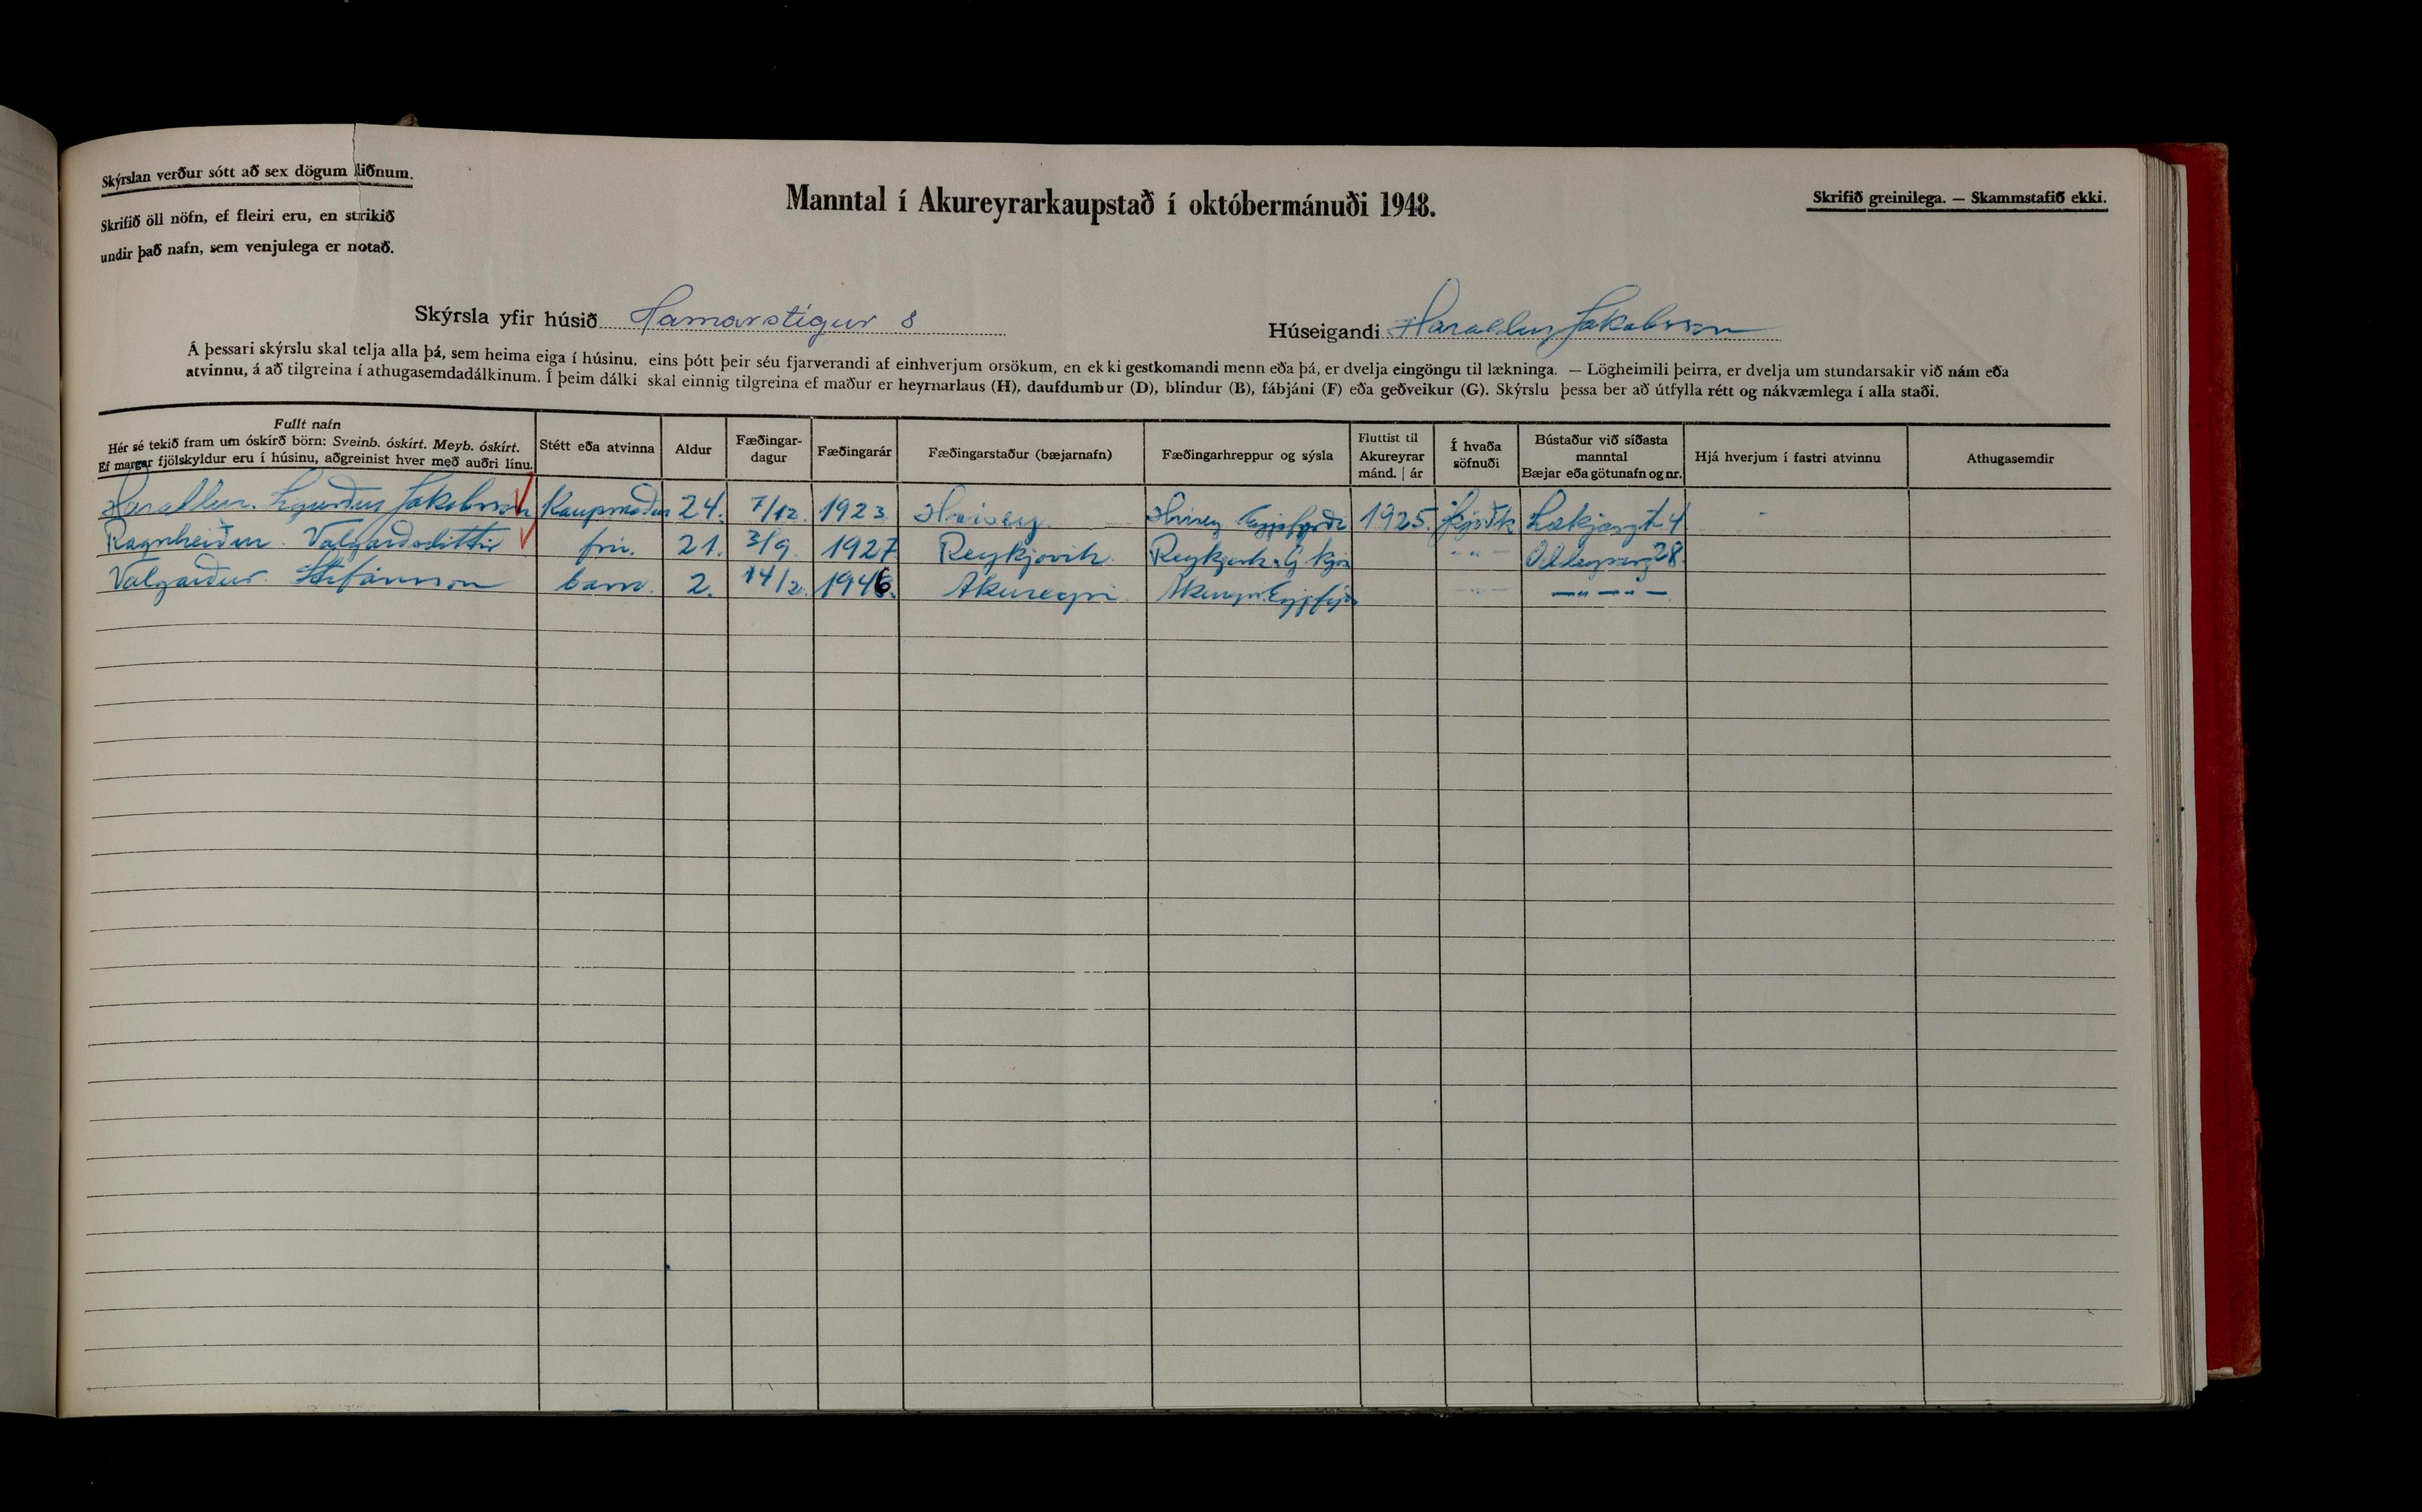 Skýrslan verður sótt að sex dögum liðnum.
Skrifið öll nöfn, ef fleiri eru, en strikið
undir það nafn, sem venjulega er notað.
Manntal í Akureyrarkaupstað í októbermánuði 1948.
Skrifið greinilega. — Skammstafið ekki.
Skýrsla yfir húsið Hamarstígur 8
Húseigandi Haraldur Jakobsson
Á þessari skýrslu skal telja alla þá, sem heima eiga í húsinu, eins þótt þeir séu fjarverandi af einhverjum orsökum, en ekki gestkomandi menn eða þá, er dvelja eingöngu til lækninga. — Lögheimili þeirra, er dvelja um stundarsakir við nám eða
atvinnu, á að tilgreina í athugasemdadálkinum. Í þeim dálki skal einnig tilgreina ef maður er heyrnarlaus (H), daufdumbur (D), blindur (B), fábjáni (F) eða geðveikur (G). Skýrslu þessa ber að útfylla rétt og nákvæmlega í alla staði.
Fullt nafn
Hér sé tekið fram um óskírð börn: Sveinb. óskírt. Meyb. óskírt.
Ef margar fjölskyldur eru í húsinu, aðgreinist hver með auðri línu.
Stétt eða atvinna
Aldur
Fæðingar-
dagur
Fæðingarár
Fæðingarstaður (bæjarnafn)
Fæðingarhreppur og sýsla
Fluttist til
Akureyrar
mánd. | ár
Í hvaða
söfnuði
Bústaður við síðasta
manntal
Bæjar eða götunafn og nr.
Hjá hverjum í fastri atvinnu
Athugasemdir
Haraldur Sigurður Jakobsson Kaupmaður 24. 7/12. 1923 Hrísey Hrísey 1925. Þjóðk. Lækjargt. 4
Ragnheiður Valgarðsdóttir frú. 21. 3/9. 1927 Reykjavík -"- 28
Valgarður Stefánsson barn. 2. 14/2. 1946. Akureyri -"- -"-